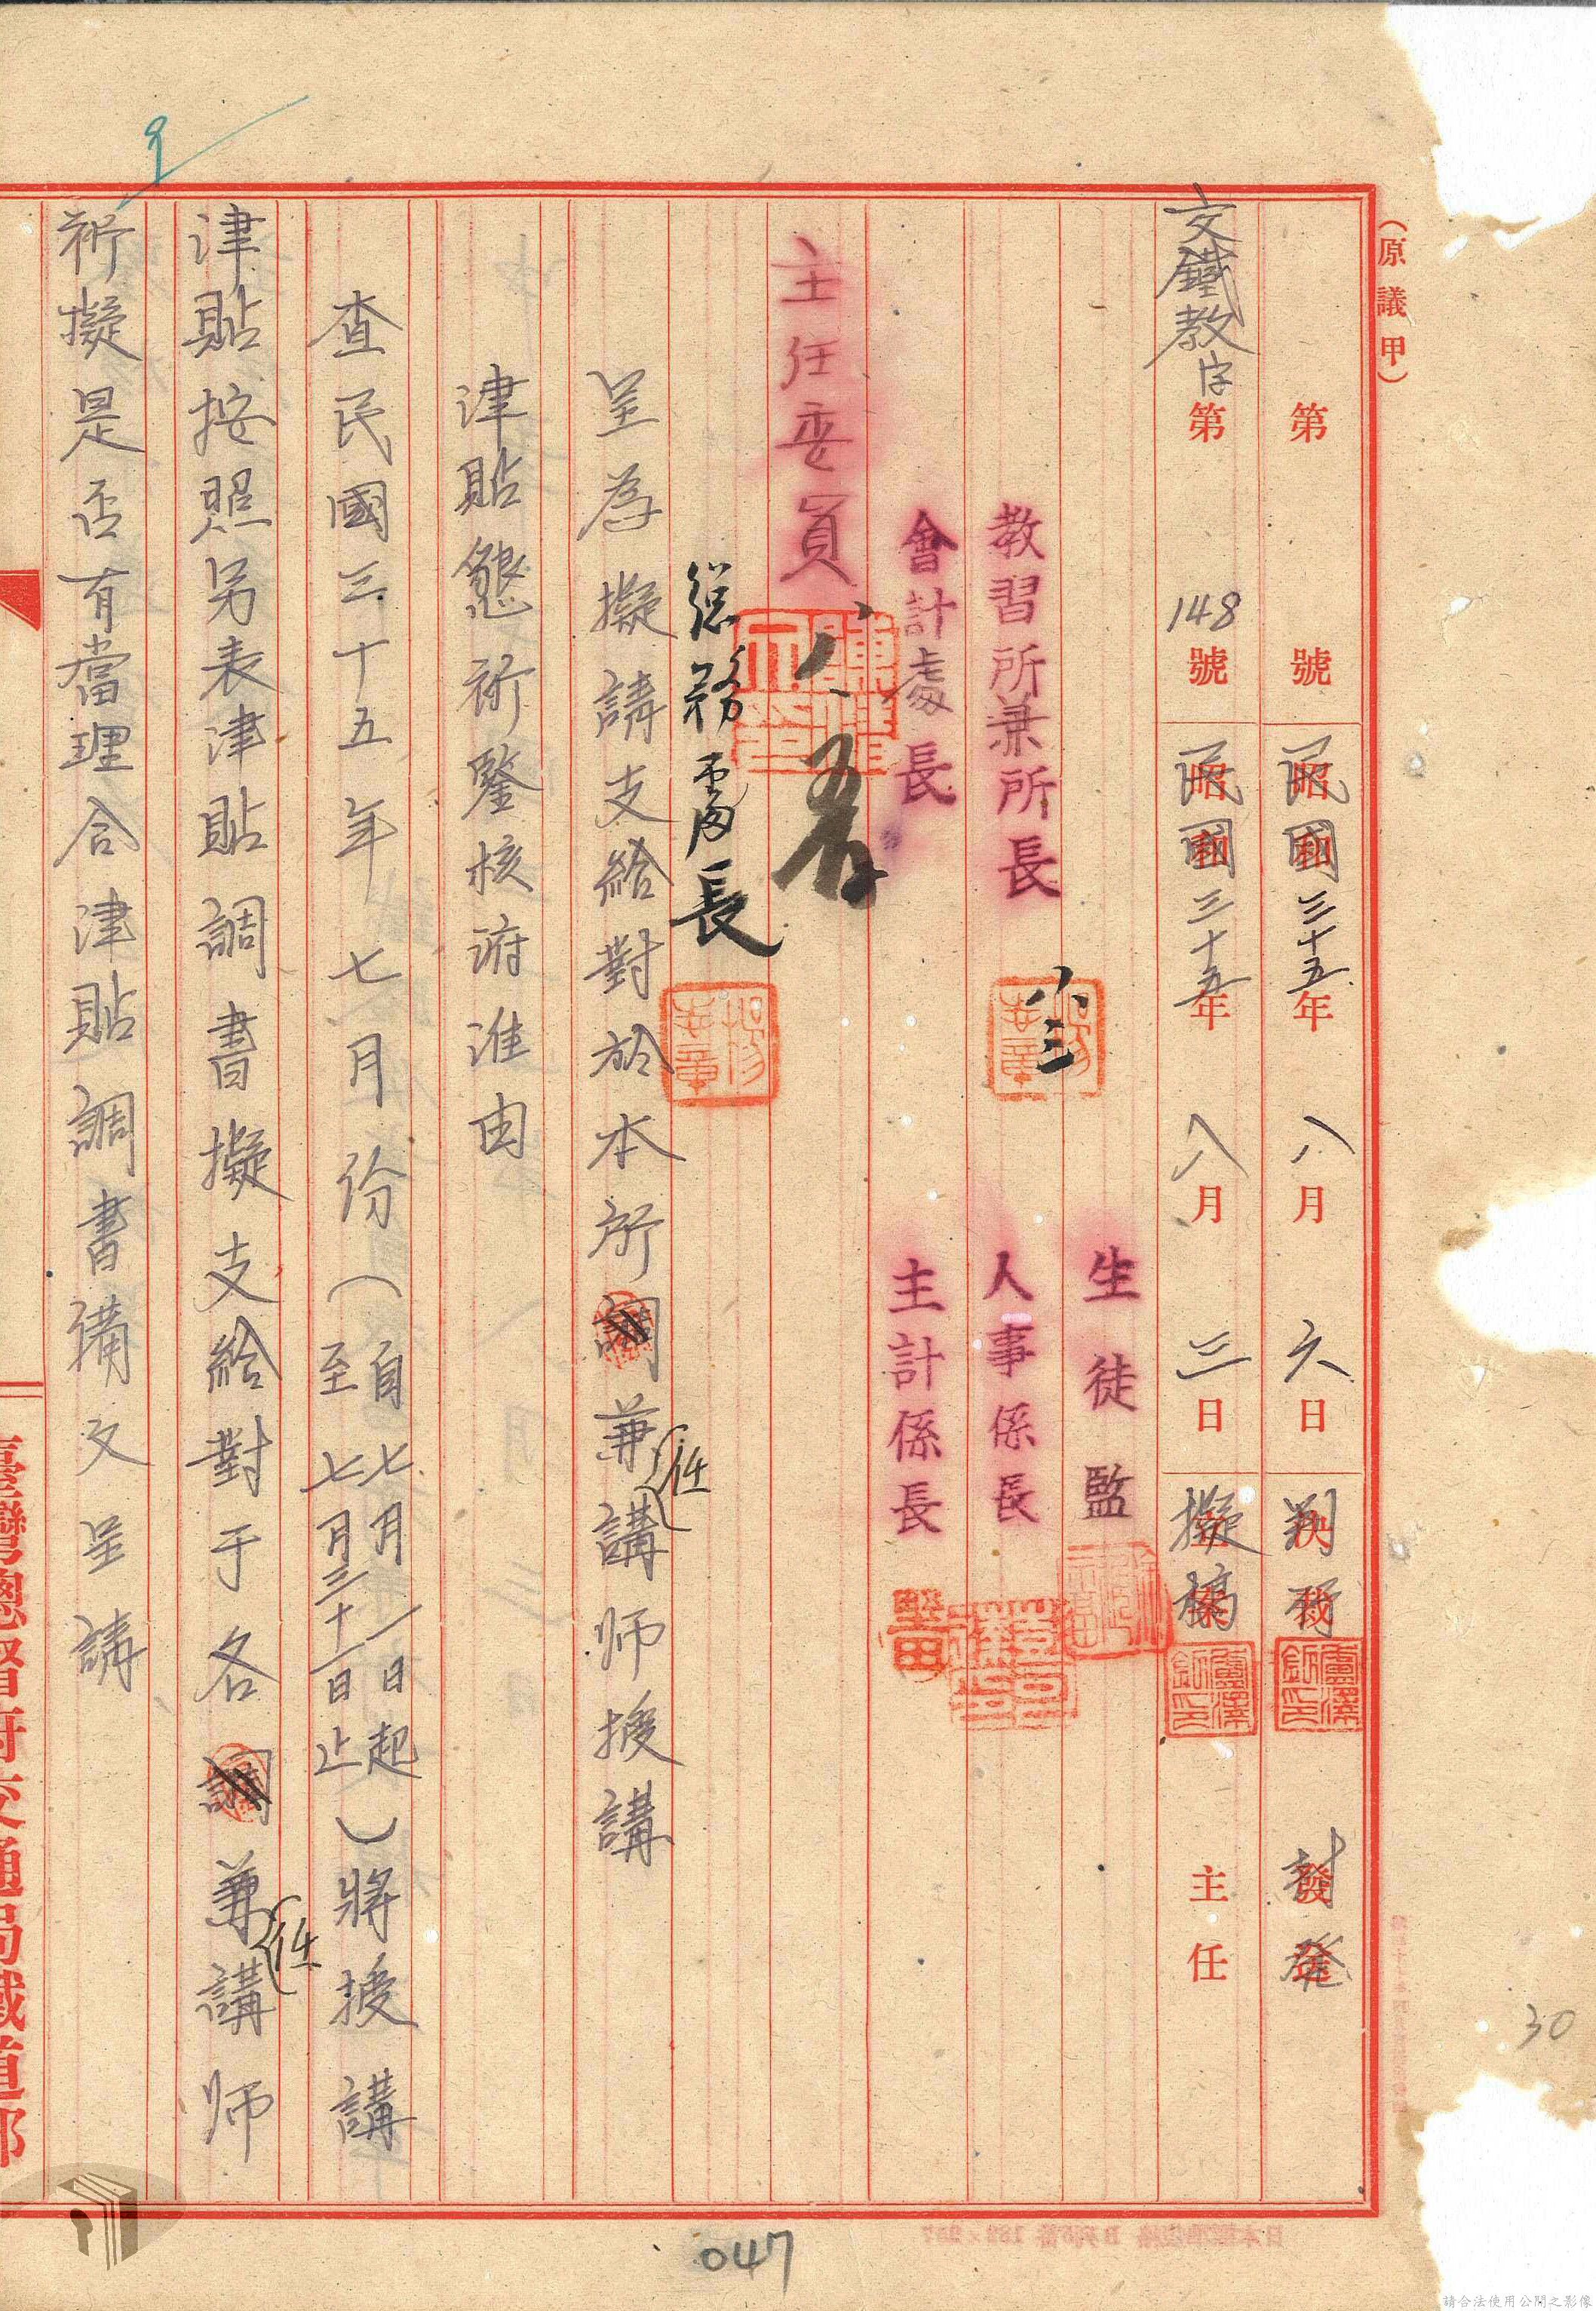 （原議甲）
第 號 民國三十五年 八月 六日 判行 封發
交鐵教字第148號 民國三十五年 八月 三日 擬稿 主任
生徒監
教習所兼所長 八三 人事係長
會計處長 主計係長
主任委員 八
總務處長
呈為擬請支給對於本所兼(任)講師授講
津貼懇祈鑒核谘准由
查民國三十五年七月份（自七月一日起至七月三十一日止）將授講
津貼按照另表津貼調書擬支給對于各兼(任)講師
祈擬是否有當理合津貼調書備文呈請
臺灣總督府交通局鐵道部
047
30
請合法使用公開之影像